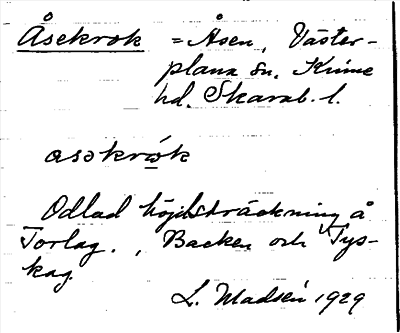 Åsekrok = Åsen, Väster-
plana sn. Kinne
hd. Skarab. l.
asekrók
Odlad höjdsträckning å
Torlag., Backen och Tys-
kag.
L. Madsén 1929